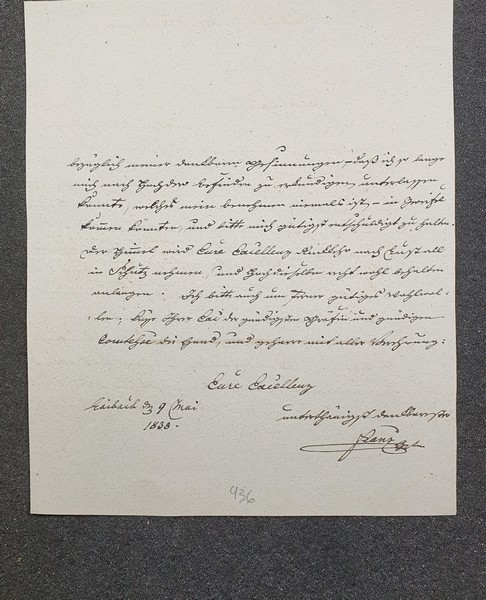 bezüglich meiner dankbaren Gesinnungen – daß ich so lange
mich nach Hochdero befinden zu erkundigen, unterlassen
konnte, welches mein benehmen niemals ist, – in Zweifel
kommen konnten, und bitte mich gütigst entschuldigt zu halten.
Der Himmel wird Eure Excellenz Rückkehr nach
in Schutz nehmen, und Hochdieselbe recht wohl behalten
anlangen. Ich bitte auch um ferner gütiges Wohlwol-
len; küße Ihrer der gnädigsten Gräfin und gnädigen
Comteße die Hand, und geharre mit aller Verehrung:
Eure Excellenz
Laibach d 9 Mai
1838.
unterthänigst dankbarster
Franz
936